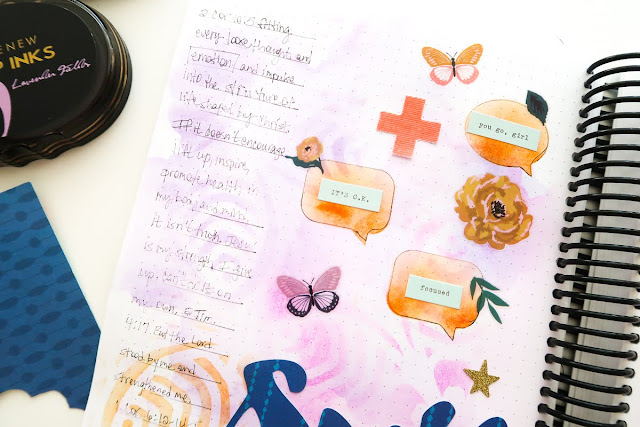 RENEW
INKS
Lavender Fields
2 Cor 10:5 fitting
every loose thought and
emotion and impulse
into the structure of
life shaped by Christ.
If it doesn't encourage,
lift up, inspire,
promote health in
my body and mind,
it isn't truth. Jesus
is my strength, I give
up, can't do it on
my own. 2 Tim.
4:17 But the Lord
stood by me and
strengthened me,
1 Cor 6:12-14
you go, girl
IT'S O.K.
focused